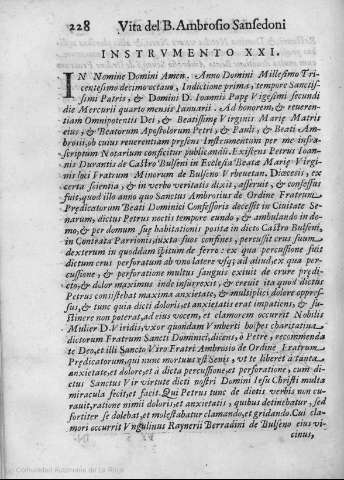 228 Vita del B. Ambrosio Sansedoni
INSTRVMENTO XXI.
IN Nomine Domini Amen. Anno Domini Millesimo Tri-
centesimo decimo octauo, Indictione prima, tempore Sanctis-
simi Patris, & D. Ioannis Papę Vigesimi secundi
die Mercurii quarto mensis Ianuarii. Ad honorem, & reueren-
tiam Omnipotentis Dei, & Beatissimę Virginis Marię Matris
eius, & Beatorum Apostolorum Petri, & Pauli, & Beati Am-
brosii, ob cuius reuerentiam pręsens Instrumentum per me infra-
scriptum Notarium conficitur publicandi. Existens Petrus Ioan-
nis Durantis de Castro Bulseni in Ecclesia Beatæ Marię Virgi-
nis loci Fratrum Minorum de Bulseno Vrbeuetan. Diœcesi, ex
certa scientia, & in verbo veritatis dixit, asseruit, & confessus
fuit, quod illo anno quo Sanctus Ambrosius de Ordine Fratrum
Prędicatorum Beati Dominici Confessoris decessit in Ciuitate Se-
narum, dictus Petrus noctis tempore eundo, & ambulando in do-
mo, & per domum suę habitationis posita in dicto Castro Bulseni,
in Contrata Parrionis, iuxta suos confines, percussit crus suum
dexterum in quoddam spitum de ferro: ex qua percussione fuit
dictum crus perforatum ab vno latere vsq; ad aliud, ex qua per-
cussione, & perforatione multus sanguis exiuit de crure prędi-
cto, & dolor maximus inde insurrexit, & creuit ita quod dictus
Petrus consistebat maxima anxietate, & multiplici dolore oppres-
sus, & tunc quia dicti doloris, et anxietatis erat impatiens, & su-
stinere non poterat, ad eius vocem, et clamorem occurrit Nobilis
Mulier D. Viridis, vxor quondam Vmberti hospes charitatiua
dictorum Fratrum Sancti Dominici, dicens, ò Petre, recommenda
te Deo, et illi Sancto Viro Fratri Ambrosio de Ordine Fratrum
Prędicatorum, qui nunc mortuus est Senis, vt te liberet à tanta
anxietate, et dolore, et à dicta percussione, et perforatione, cum di-
ctus Sanctus Vir virtute dicti nostri Domini Iesu Christi multa
miracula fecit, et facit. Qui Petrus tunc de dictis verbis non cu-
rauit, ratione nimii doloris, et anxietatis, quibus detinebatur, sed
fortiter se dolebat, et molestabatur clamando, et gridando. Cui cla-
mori occurrit Vngulinus Raynerii Berradini de Bulseno eius vi-
cinus,
Comunidad Autónoma de La Rioja